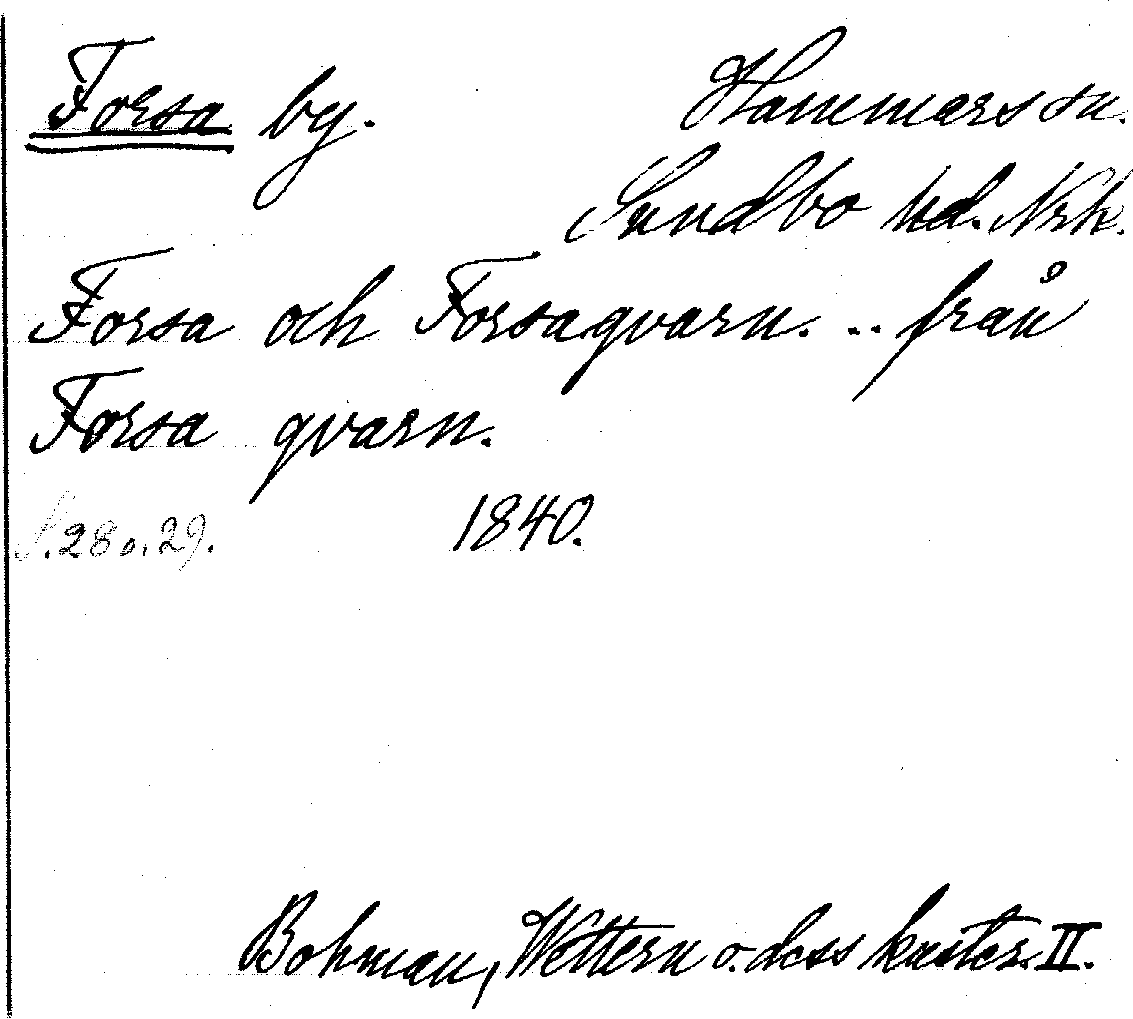 Forsa by. Hammars sn.
Sundbo hd. Nrk.
Forsa och Forsaqvarn. .. från
Forsa qvarn.
S. 28 o. 29. 1840.
Bohman, Wettern o. dess kuster. II.